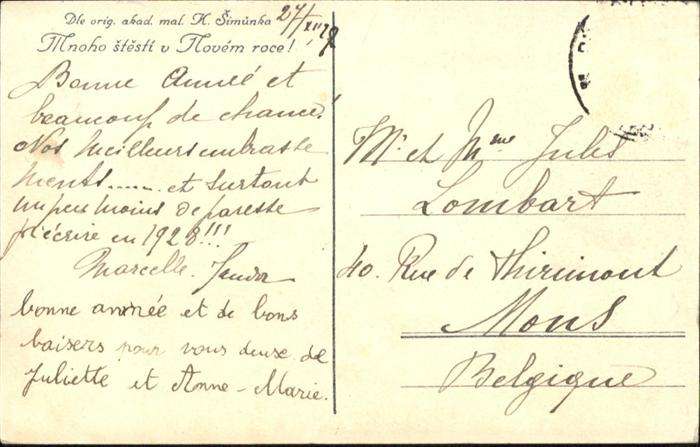 Dle orig. akad. mal. K. Šimůnka
Mnoho štěstí v Novém roce!
27/XII
Bonne Année et
beaucoup de chance!
Nos meilleurs embrasse
ments...... et surtout
un peu moins de paresse
d'écrire en 1928!!!
Marcelle.
bonne année et de bons
baisers pour vous deux de
Juliette et Anne-Marie.
Mr et Mme Jules
Lombart
40. Rue de Thirimont
Mons
Belgique